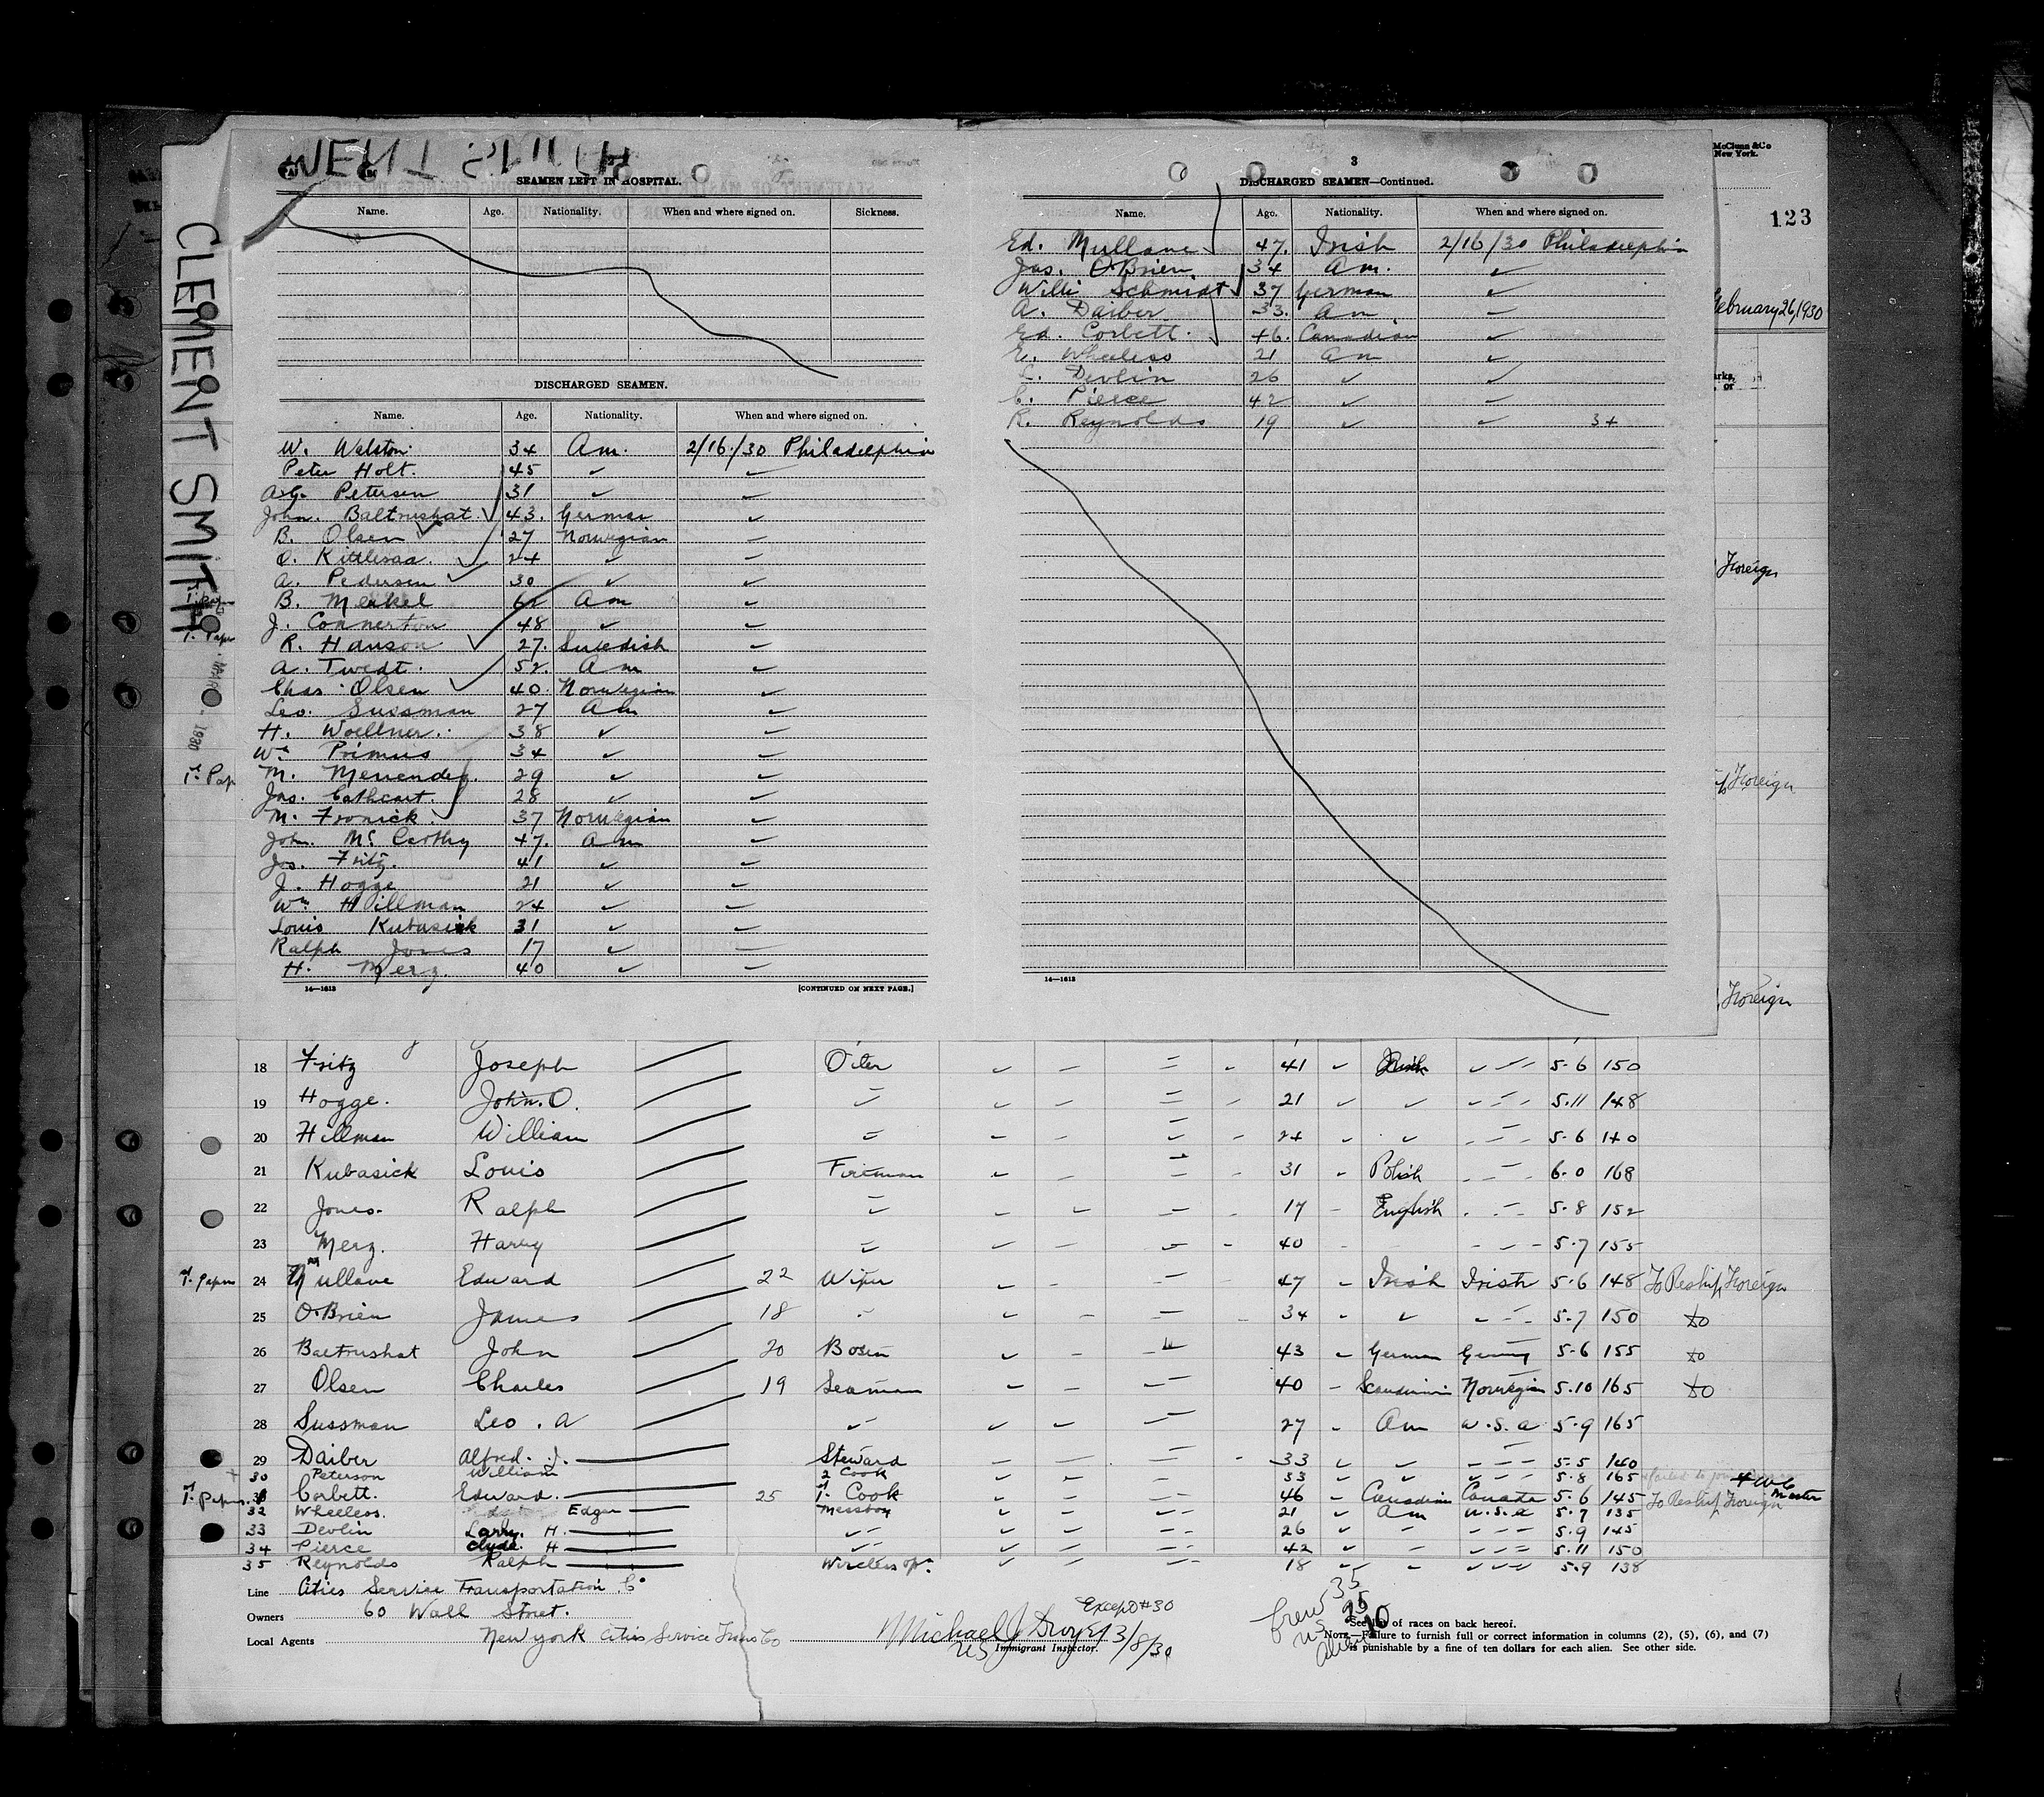 CLEMENT SMITH
SEAMEN LEFT IN HOSPITAL.
Name. Age. Nationality. When and where signed on. Sickness.
DISCHARGED SEAMEN.
Name. Age. Nationality. When and where signed on.
W. Walston. 34 Am. 2/16/30 Philadelphia
Peter Holt. 45 ✓ ✓
A.G. Petersen 31 ✓ ✓
John. Baltrushat. 43. German ✓
B. Olsen 27 Norwegian ✓
O. Kittlesaa. 24 ✓ ✓
A. Pedersen 30 ✓ ✓
B. Merkel 62 Am ✓
J. Connerton 48 ✓ ✓
R. Hanson 27. Swedish ✓
A. Twedt. 52. Am ✓
Chas. Olsen 40. Norwegian ✓
Leo. Sussman 27 Am ✓
H. Woellner. 38 ✓ ✓
Wm Primus 34 ✓ ✓
M. Menendez. 29 ✓ ✓
Jas. Cathcart. 28 ✓ ✓
M. Fronick. 37 Norwegian ✓
John. Mc Carthy 47. Am ✓
Jos. Fritz. 41 ✓ ✓
J. Hogge 21 ✓ ✓
Wm Hillman 24 ✓ ✓
Louis Kubasick 31 ✓ ✓
Ralph Jones 17 ✓ ✓
H. Merz. 40 ✓ ✓
14—1613 [CONTINUED ON NEXT PAGE.]
3
DISCHARGED SEAMEN—Continued.
Name. Age. Nationality. When and where signed on.
Ed. Mullane 47. Irish 2/16/30 Philadelphia
Jas. O'Brien 34 Am. ✓
Willi Schmidt 37 German ✓
A. Daiber 33. Am ✓
Ed. Corbett. 46. Canadian ✓
E. Wheeless 21 Am ✓
L. Devlin 26 ✓ ✓
C. Pierce 42 ✓ ✓
R. Reynolds 19 ✓ ✓ 34
14—1613
McClunn & Co
New York.
123
February 26, 1930
Foreign
Foreign
Foreign
1st Pap
18 Fritz Joseph Oiler 41 Irish 5-6 150
19 Hogge. John. O. 21 5.11 148
20 Hillman William 24 5-6 140
21 Kubasick Louis Fireman 31 Polish 6-0 168
22 Jones. Ralph 17 English 5-8 152
23 Merz. Harry 40 5-7 155
1st Papers 24 Mullane Edward 22 Wiper 47 Irish Irish 5-6 148 To Reship Foreign
25 O'Brien James 18 34 5-7 150 do
26 Baltrushat John 20 Bosun 43 German Germany 5-6 155 do
27 Olsen Charles 19 Seaman 40 Scandinavian Norwegian 5.10 165 do
28 Sussman Leo. A 27 Am U.S.A 5-9 165
29 Daiber Alfred. J. Steward 33 5-5 140
30 Peterson William 2 Cook 33 5-8 165 failed to join
1st Papers. 31 Corbett. Edward. 25 1st Cook 46 Canadian Canada 5-6 145 To Reship Foreign Master
32 Wheeless. Edgar Messboy 21 Am U.S.A 5-7 135
33 Devlin Larry. H. 26 5-9 145
34 Pierce Clyde. H 42 5.11 150
35 Reynolds Ralph Wireless opr. 18 5.9 138
Line Cities Service Transportation Co
Owners 60 Wall Street.
Local Agents New York Cities Service Trans Co
Except #30
Michael J Dwyer 3/8/30
US Immigrant Inspector.
Crew 35
US 25
Alien 10
See list of races on back hereof.
NOTE.—Failure to furnish full or correct information in columns (2), (5), (6), and (7)
is punishable by a fine of ten dollars for each alien. See other side.